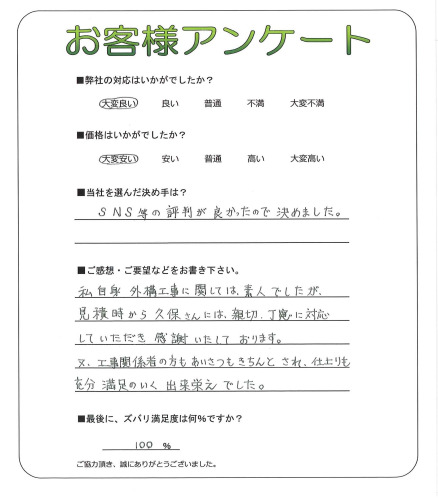 お客様アンケート
■弊社の対応はいかがでしたか？
大変良い　良い　普通　不満　大変不満
■価格はいかがでしたか？
大変安い　安い　普通　高い　大変高い
■当社を選んだ決め手は？
SNS等の評判が良かったので決めました。
■ご感想・ご要望などをお書き下さい。
私自身 外構工事に関しては、素人でしたが、
見積時から久保さんには、親切、丁寧に対応
していただき 感謝いたして おります。
又、工事関係者の方もあいさつもきちんと され、仕上りも
充分 満足のいく 出来栄えでした。
■最後に、ズバリ満足度は何％ですか？
100 ％
ご協力頂き、誠にありがとうございました。